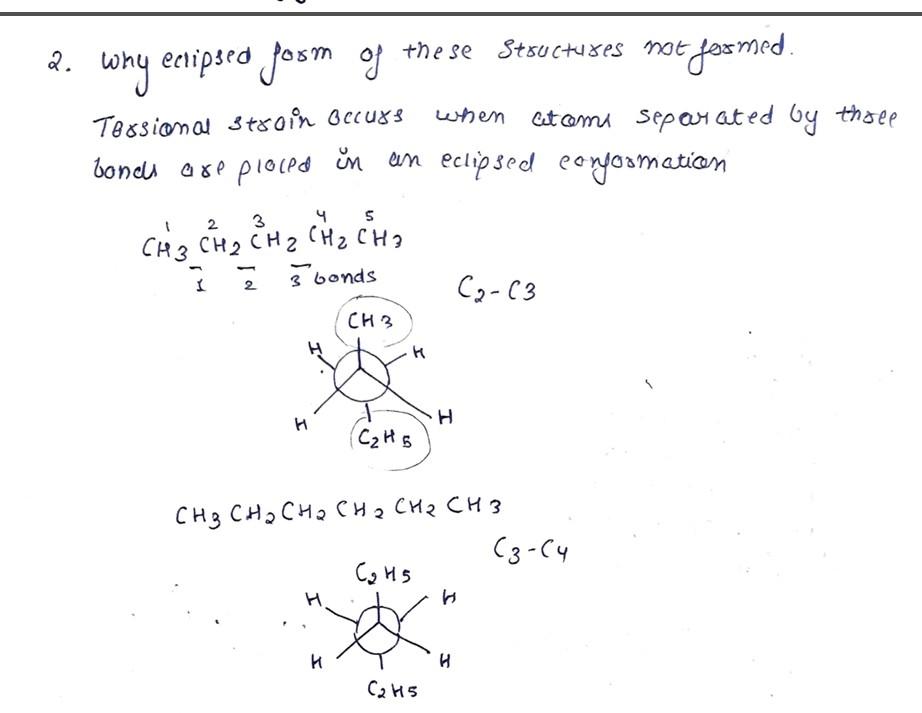 2. Why eclipsed form of these structures not formed.
Torsional strain occurs when atoms separated by three
bonds are placed in an eclipsed conformation
1 2 3 4 5
CH3 CH2 CH2 CH2 CH3
1 2 3 bonds
C2-C3
CH3
H H
H H
C2H5
CH3 CH2 CH2 CH2 CH2 CH3
C3-C4
C2H5
H H
H H
C2H5